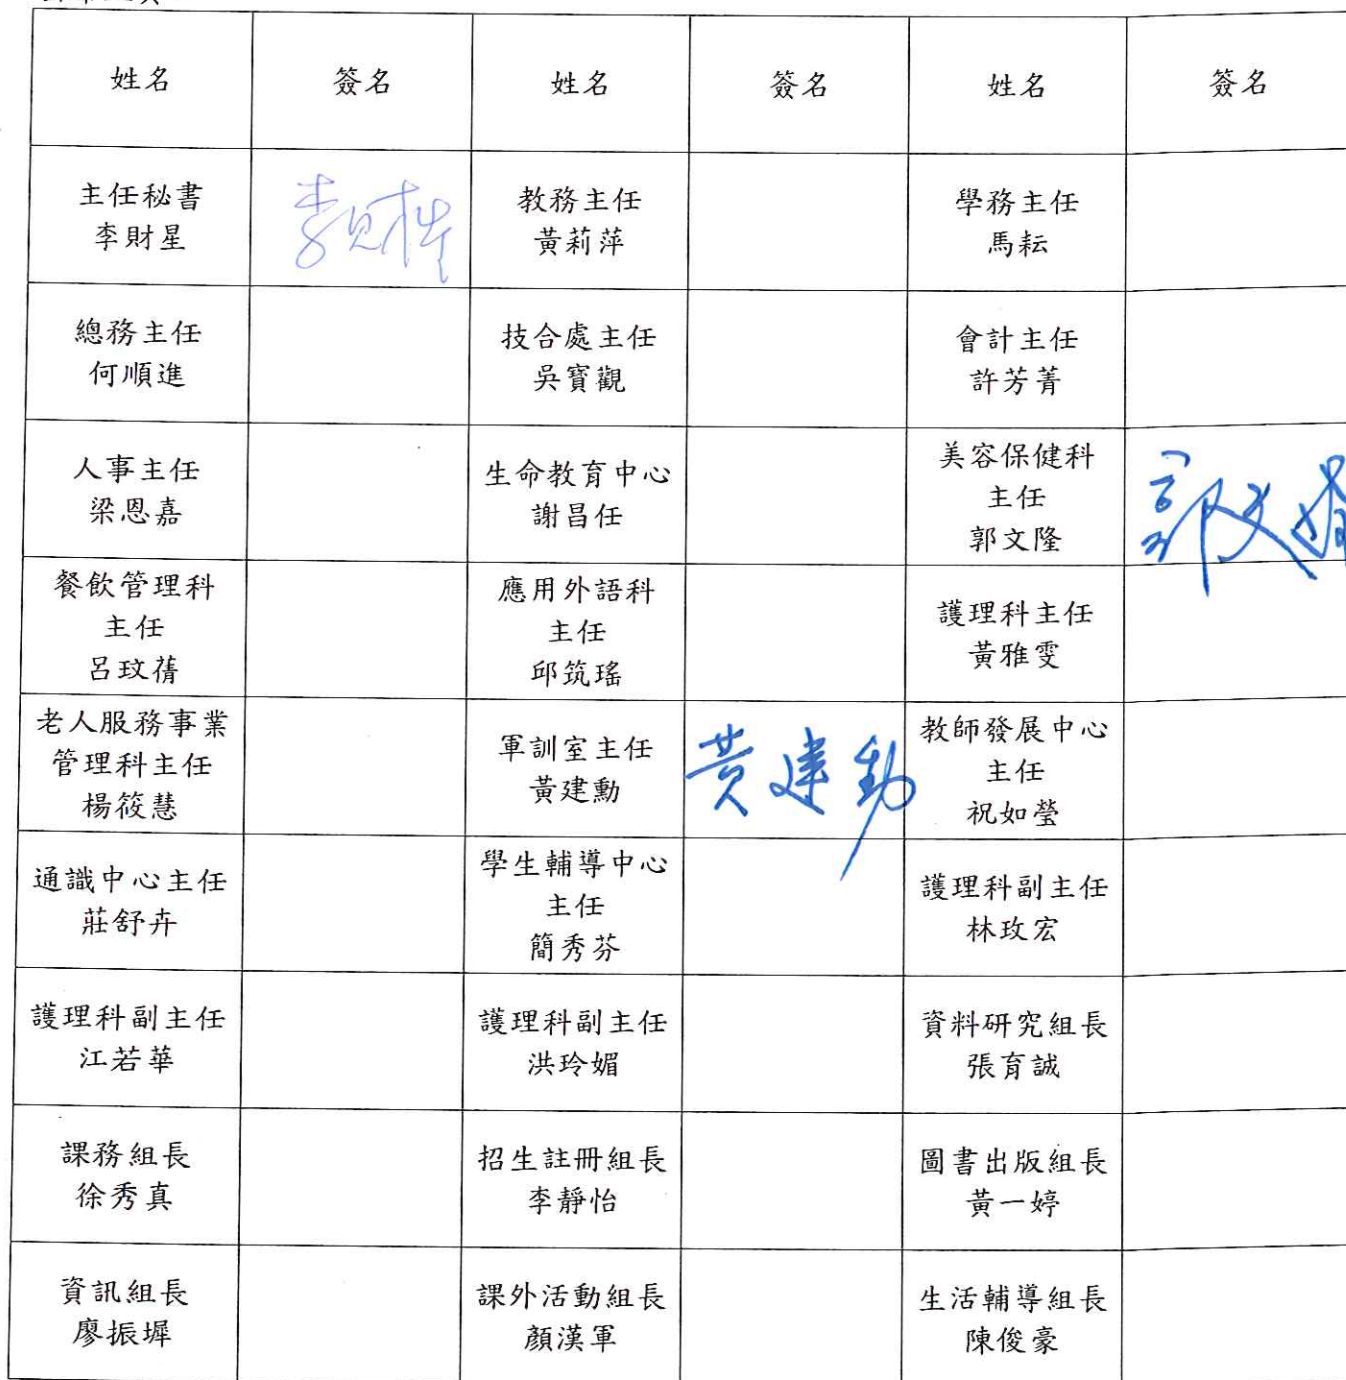 姓名 簽名 姓名 簽名 姓名 簽名
主任秘書
李財星
教務主任
黃莉萍
學務主任
馬耘
總務主任
何順進
技合處主任
吳寶觀
會計主任
許芳菁
人事主任
梁恩嘉
生命教育中心
謝昌任
美容保健科
主任
郭文隆
餐飲管理科
主任
呂玟蒨
應用外語科
主任
邱筑瑤
護理科主任
黃雅雯
老人服務事業
管理科主任
楊筱慧
軍訓室主任
黃建勳
黃建勳
教師發展中心
主任
祝如瑩
通識中心主任
莊舒卉
學生輔導中心
主任
簡秀芬
護理科副主任
林玫宏
護理科副主任
江若華
護理科副主任
洪玲媚
資料研究組長
張育誠
課務組長
徐秀真
招生註冊組長
李靜怡
圖書出版組長
黃一婷
資訊組長
廖振墀
課外活動組長
顏漢軍
生活輔導組長
陳俊豪